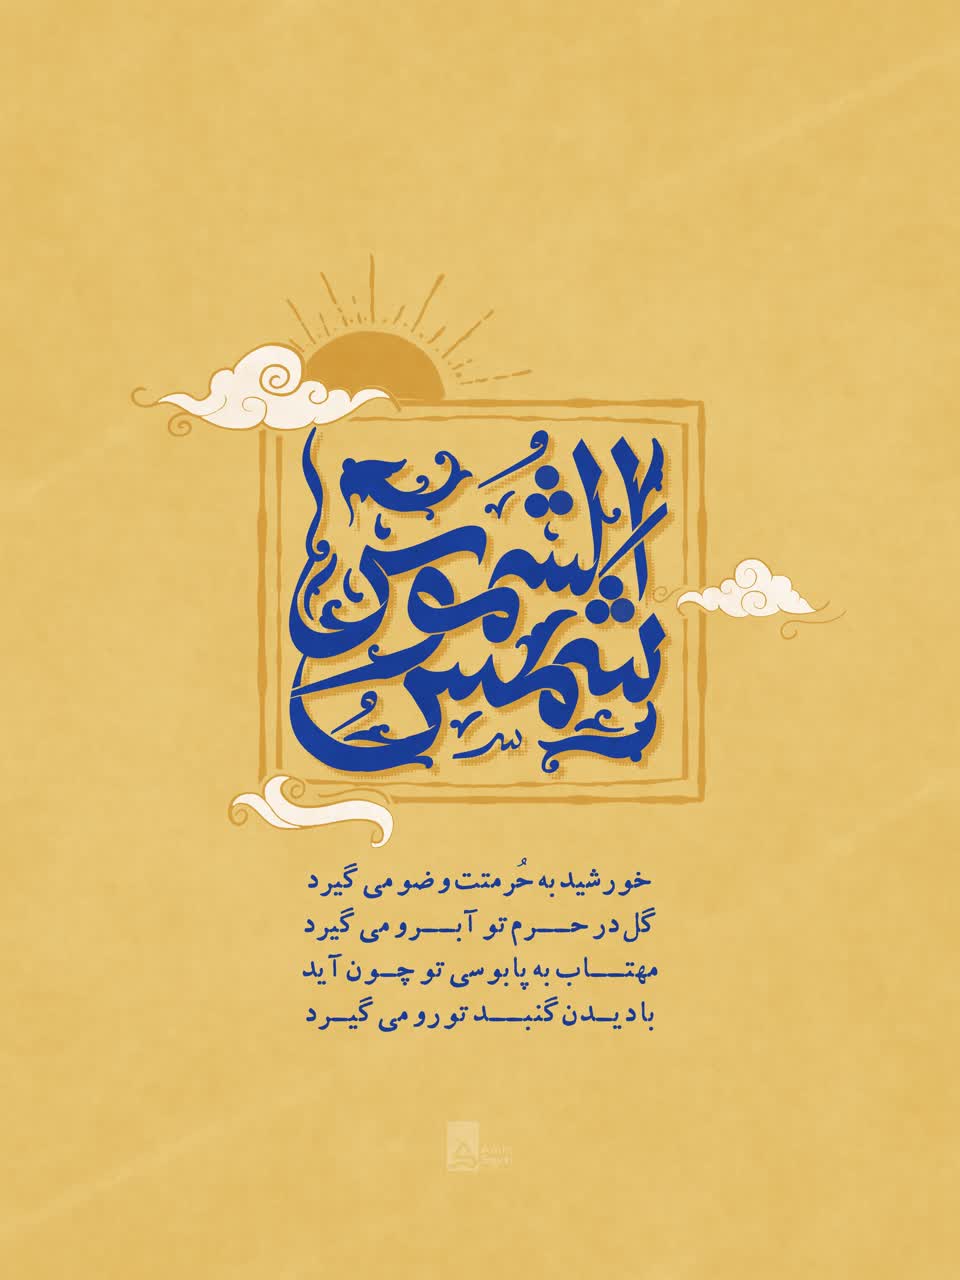 شمس الشموس
خورشید به حُرمتت وضو می گیرد
گل در حـــرم تو آبـــرو می گیرد
مهتـــاب به پابوسی تو چـــون آید
با دیـــدن گنبـــد تو رو می گیـــرد